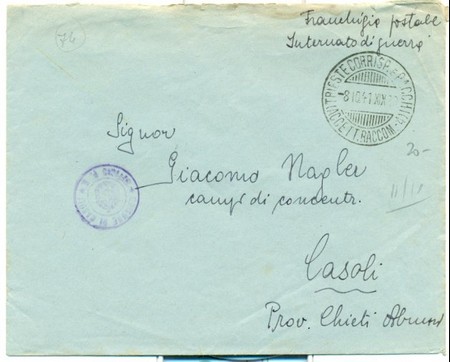 74
Franchigia postale
Internato di guerra
TRIESTE CORRISP. E PACCHI
-8.10.41.XIX
ACCETT. RACCOM.
20-
Signor
Giacomo Nagler
campi di concentr.
11/10
Casoli
Prov. Chieti Abruzzi